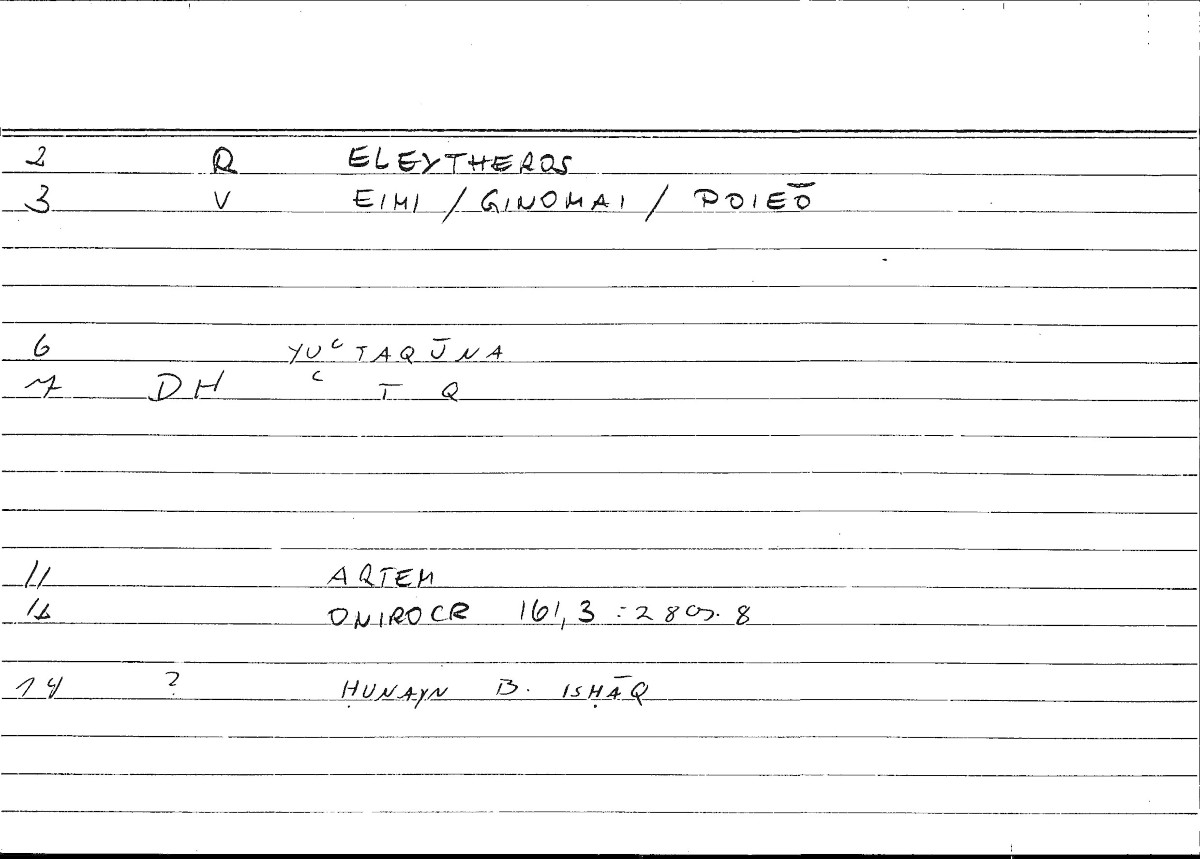 2 R ELEYTHEROS
3 V EIMI / GINOMAI / POIEŌ
6 YUᶜTAQŪNA
7 DH ᶜ T Q
11 ARTEM
12 ONIROCR 161,3 : 280, 8
14 ? ḤUNAYN B. ISḤĀQ